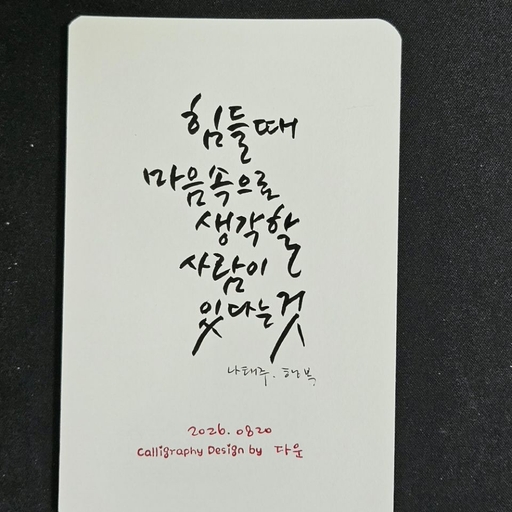 힘들때
마음속으로
생각할
사람이
있다는것
나태주. 행복
2026. 0820
Calligraphy Design by 다운